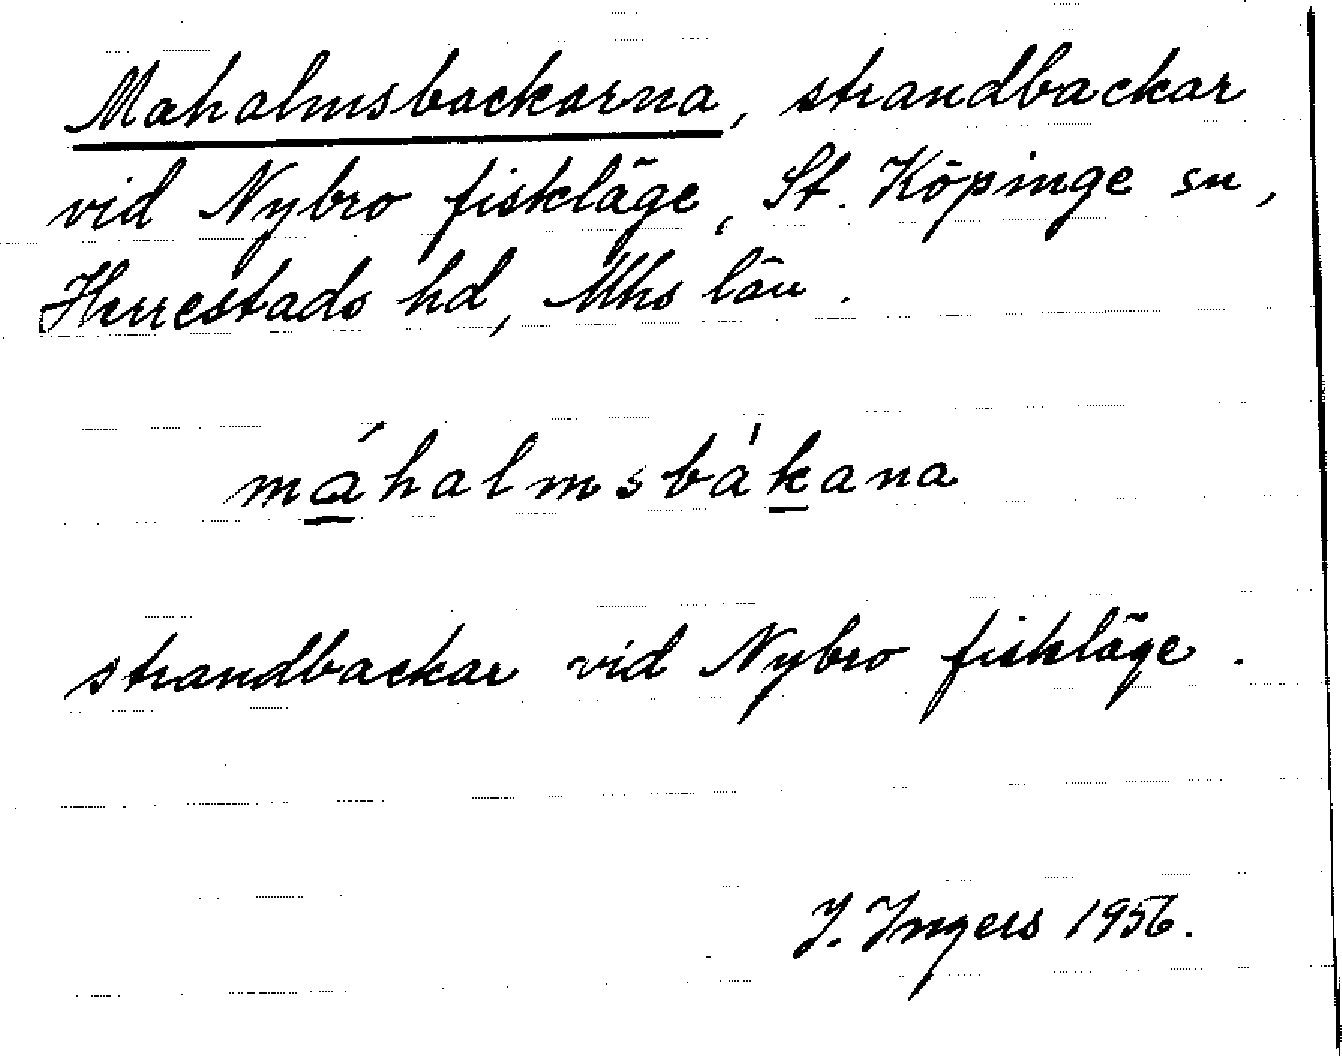 Mahalmsbackarna, strandbackar
vid Nybro fiskläge, St. Köpinge sn,
Herrestads hd, Mhs län.
máhalmsbákana
strandbackar vid Nybro fiskläge.
I. Ingers 1956.